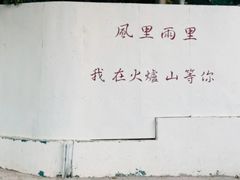 風里雨里
我在火爐山等你